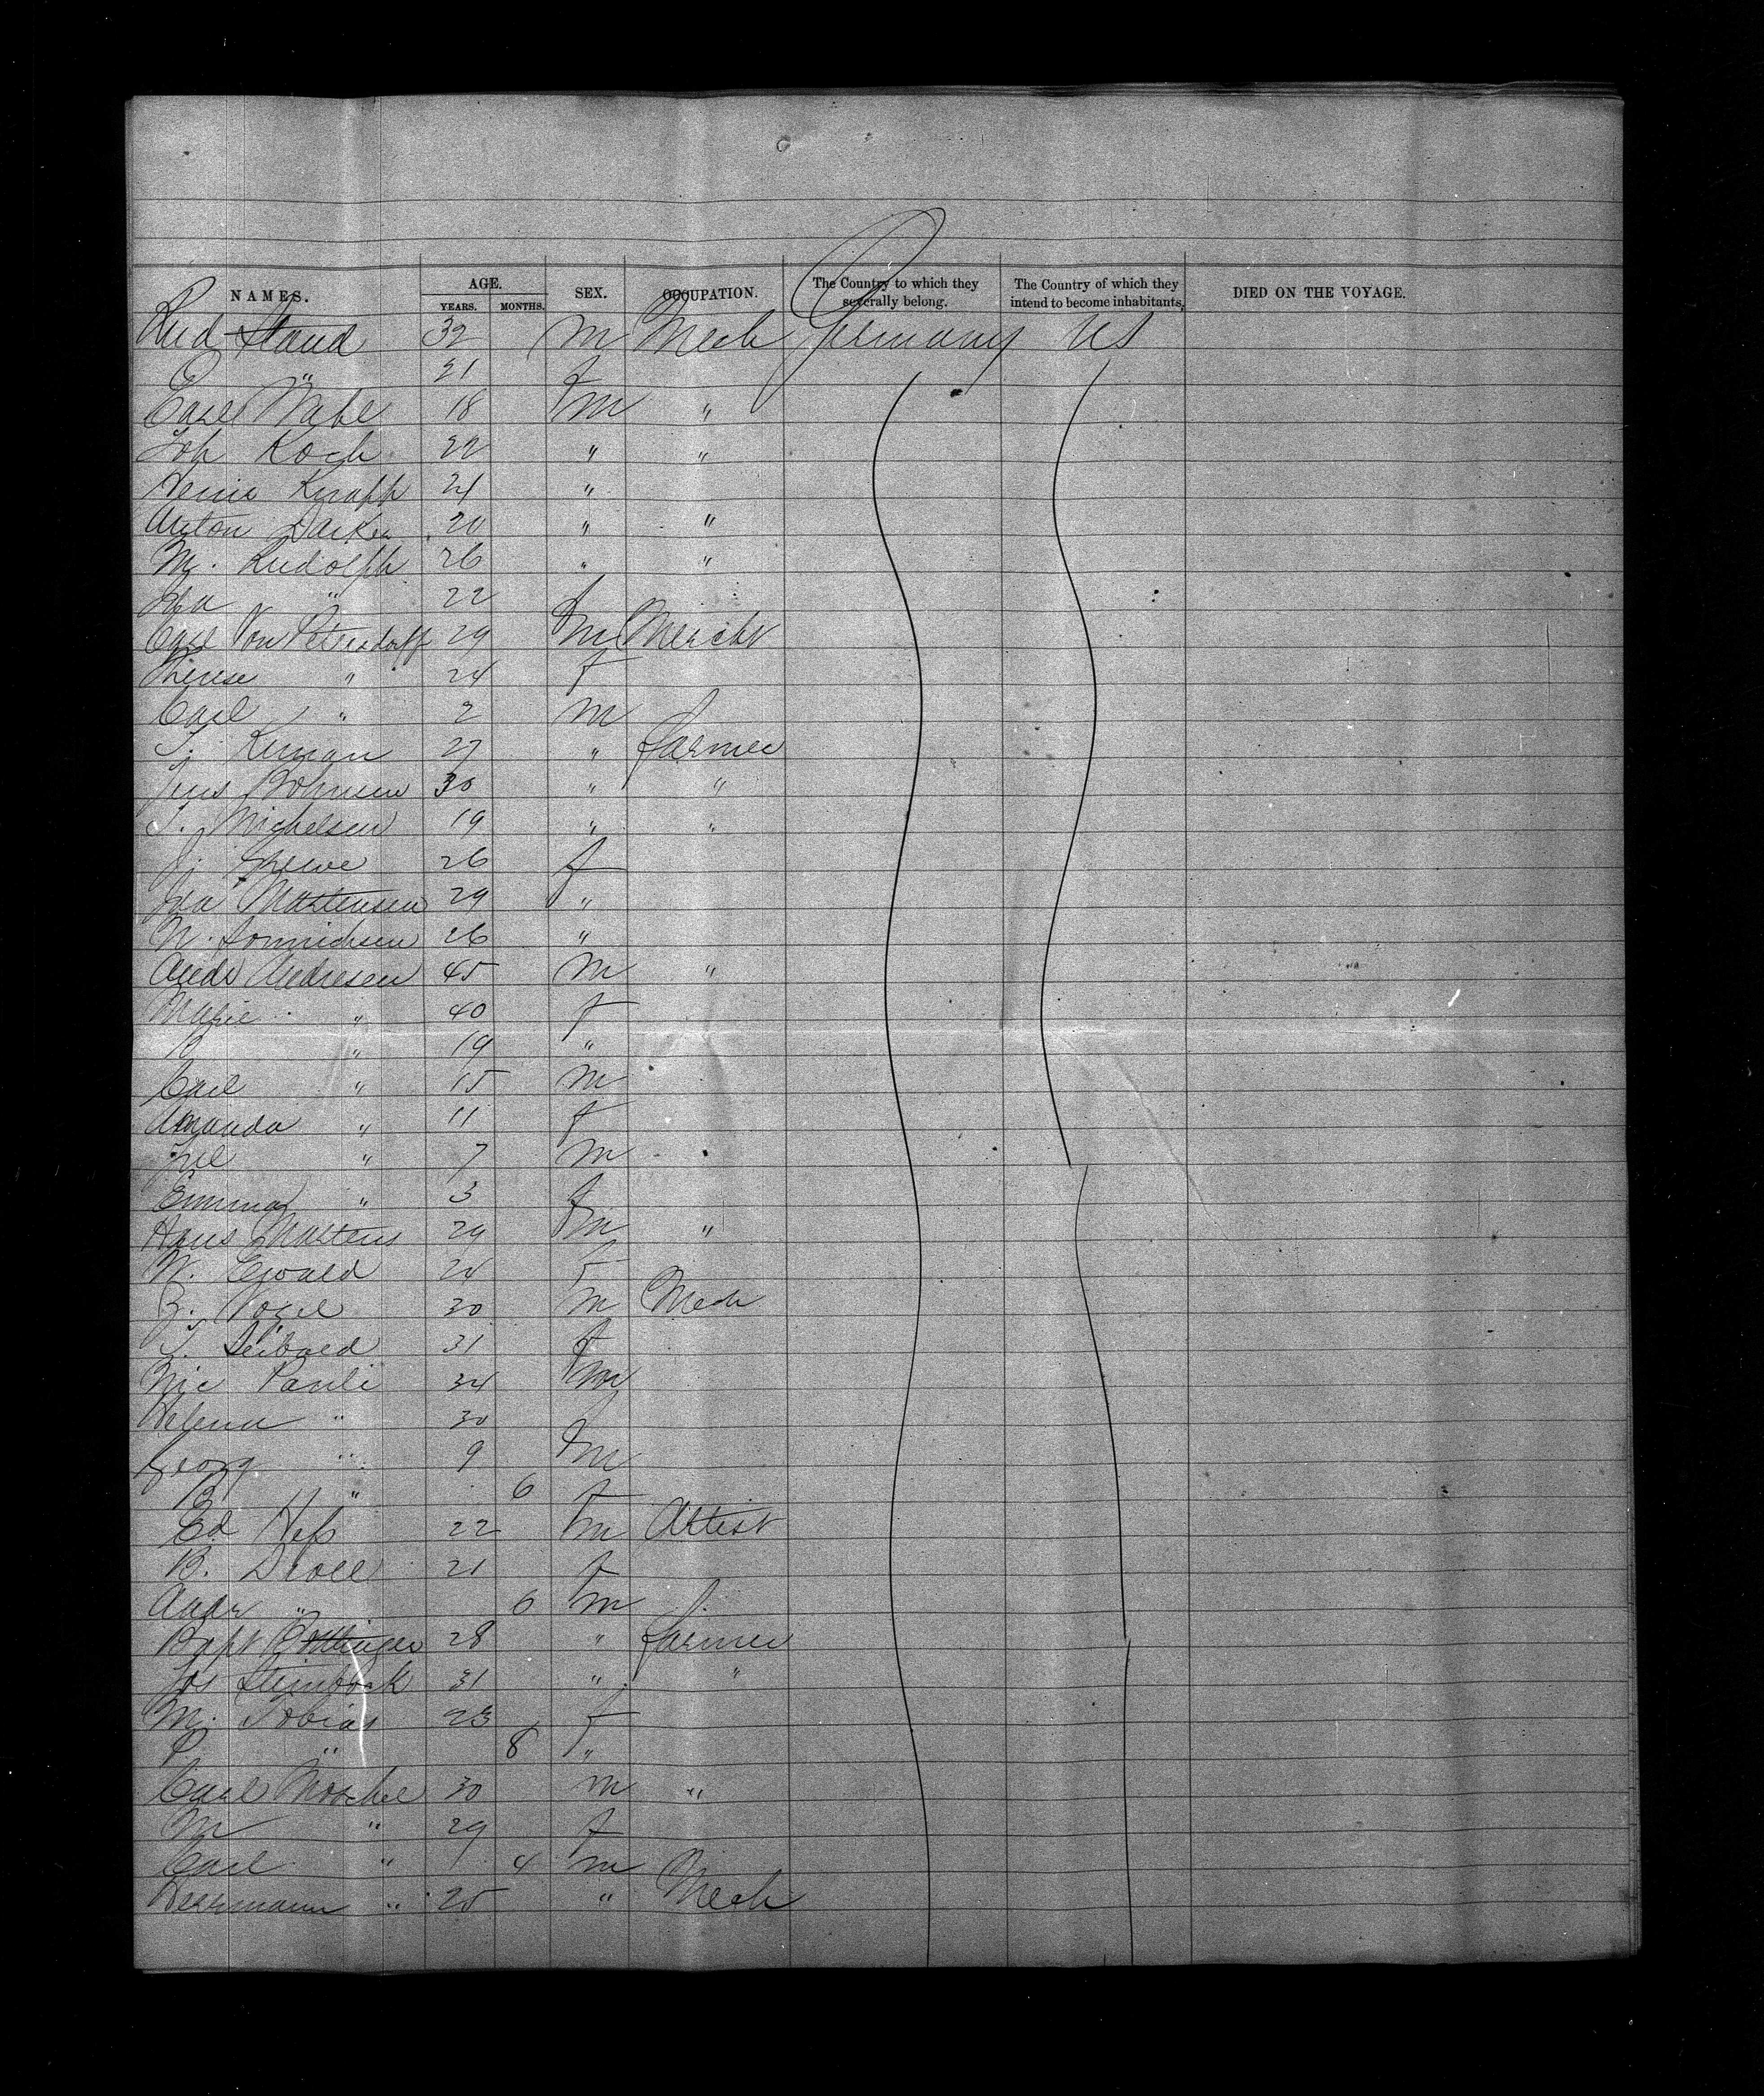 NAMES. AGE. YEARS. MONTHS. SEX. OCCUPATION. The Country to which they severally belong. The Country of which they intend to become inhabitants. DIED ON THE VOYAGE.
Rud Staud 32 m Mech Germany US
" 21 f
Carl Wahl 18 m "
Joh Koch 22 " "
Knapp 21 "
Anton 20 " "
M. Rudolph 26 " "
" 22 f
Carl Von Petersdorff 29 m Mercht
Therese " 24 f
Carl " 2 m
27 " farmer
Jens 30 " "
Michelsen 19 " "
26 f
Martensen 29 "
N. 26 "
Andr Andresen 45 m "
Marie " 40 f
" 19 "
Carl " 15 m
Amanda " 11 f
" 7 m
Emma " 3 f
Hans Martens 29 m "
W. Ewald 24 f
Vogel 30 m Mech
Seibold 31 f
Nic Pauli 34 m
Helena " 30
Georg " 9 m
B " 6 f
Ed Heß 22 m Artist
B. Droll 21 f
Andr " 6 m
Bapt 28 " farmer
Jos Steinbock 31 " "
M. Tobias 23 f
P. " 8 "
Carl Moschel 30 m "
M " 29 f
Carl " 4 m
Herrmann " 25 " Mech